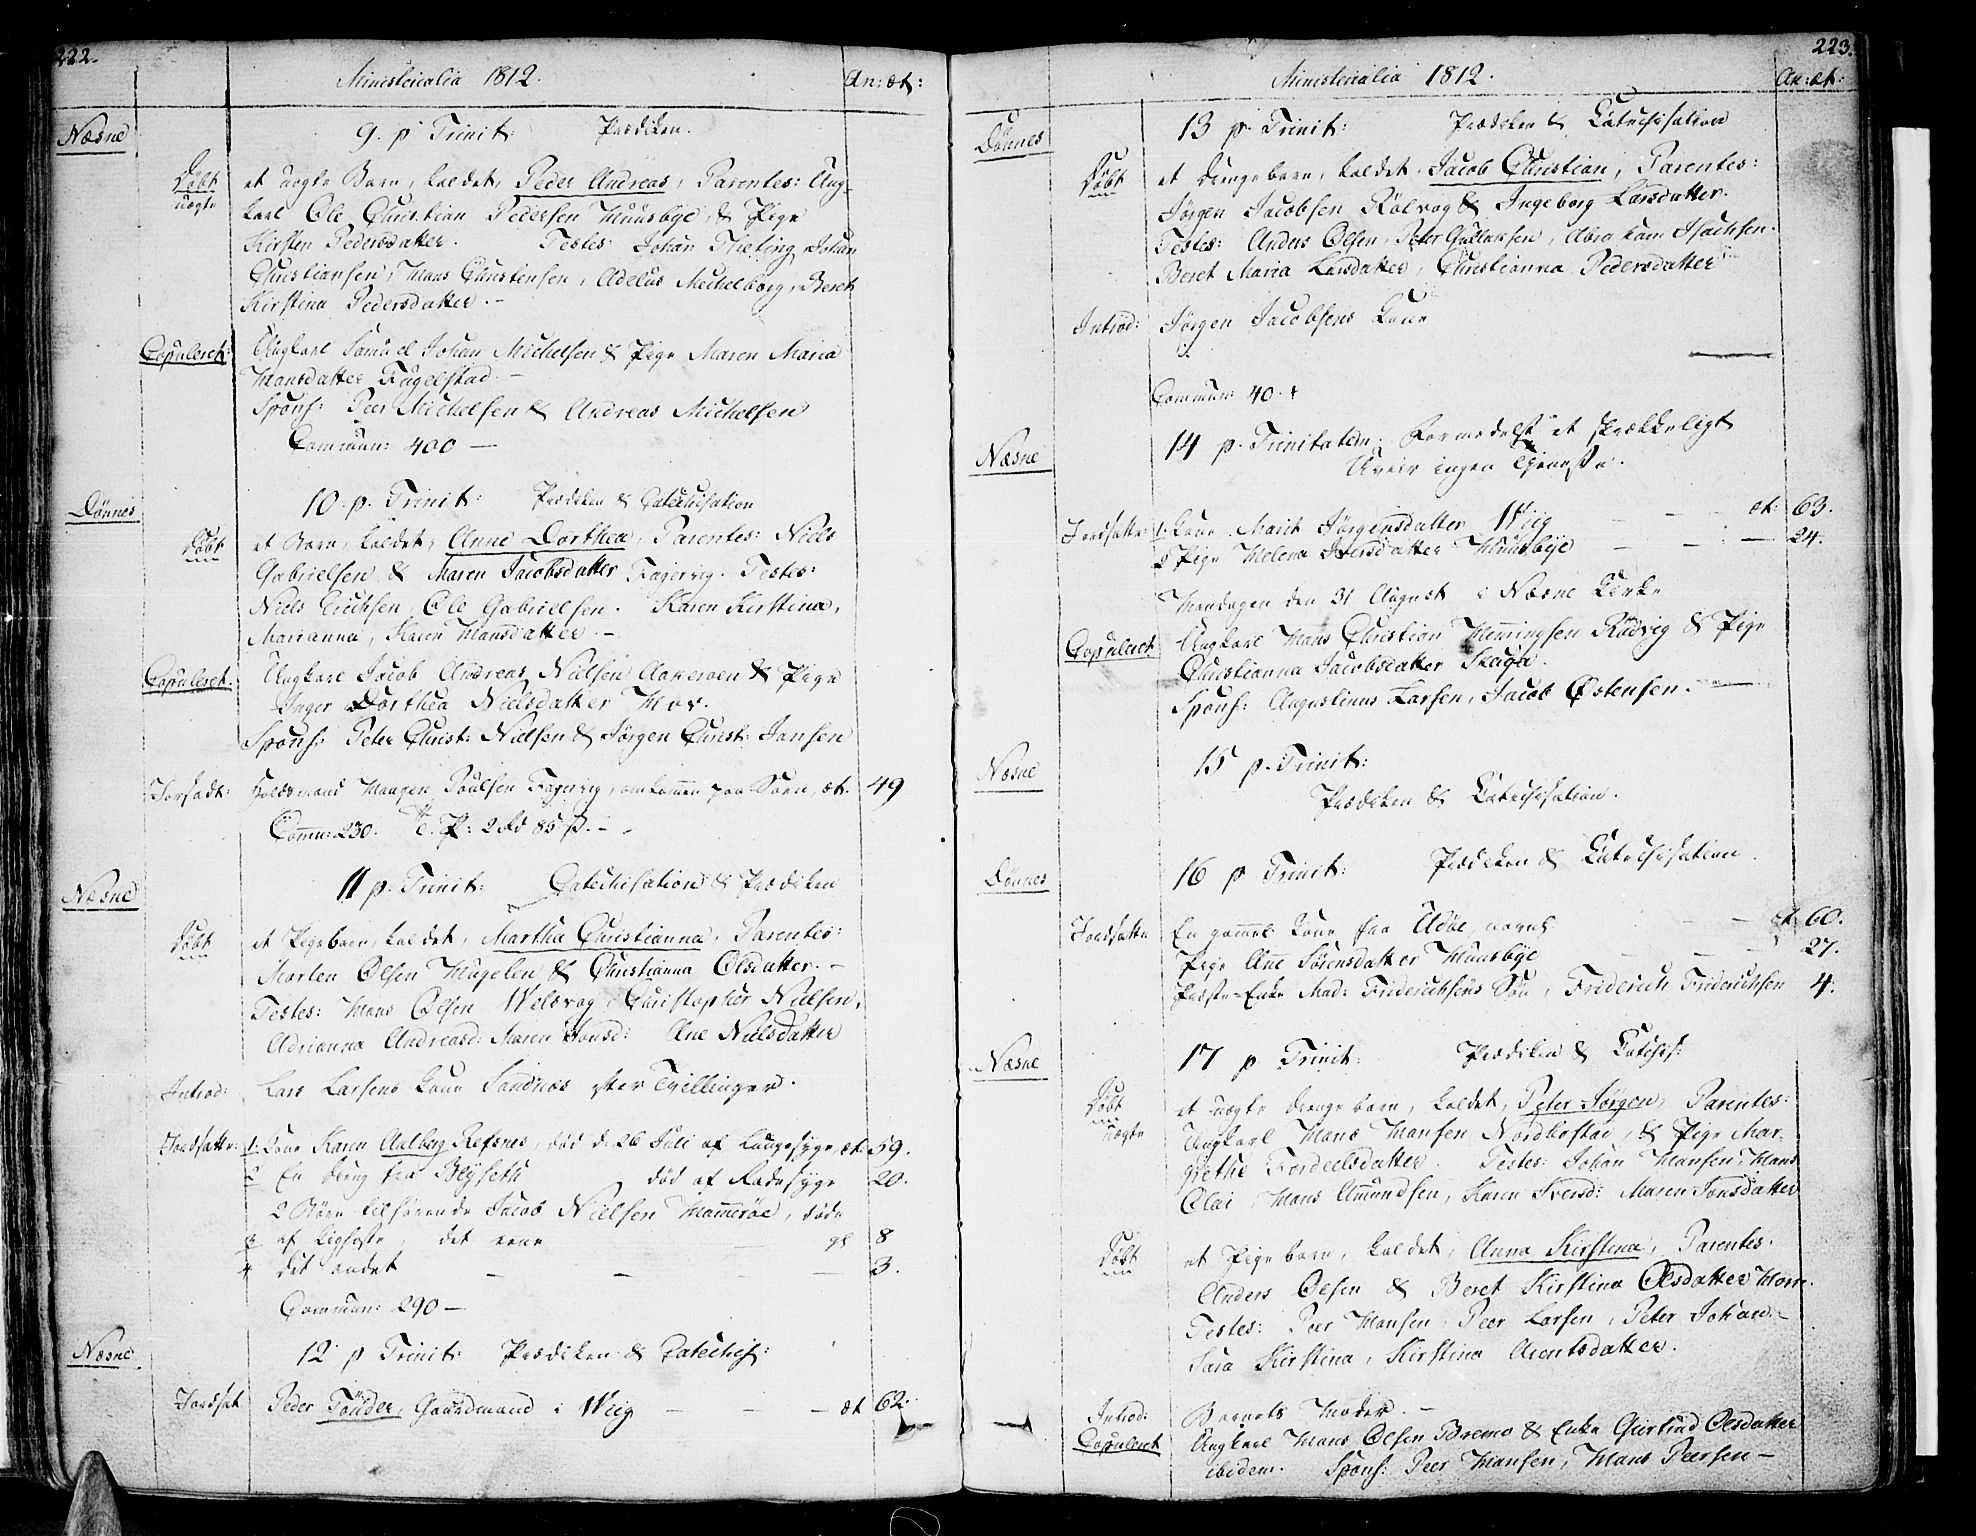 222.
Ministerialia 1812.
An: æt:
Næsne
9. p Trinit: Prædiken.
Døbt
uægte
et uægte Barn, kaldet, Peder Andreas, Parentes: Ung-
karl Ole Christian Pedersen Huusbye, & Pige
Kirsten Pedersdatter. Testes: Johan Johan
Christiansen, Hans Christensen, Adelus Michelborg, Beret
Kirstina Pedersdatter. -
Copuleret:
Ungkarl Samuel Johan Michelsen & Pige Maren Maria
Hansdatter Fagelstad. -
Spons: Peer Michelsen & Andreas Michelsen
Commun: 400 -
Dønnes
10. p. Trinit: Prædiken & Catechisation
Døbt
et Barn, kaldet, Anne Dorthea, Parentes: Niels
Gabrielsen & Maren Jacobsdatter Fagervig. Testes:
Niels Erichsen, Ole Gabrielsen. Karen Kirstina,
Marianna, Karen Hansdatter. -
Copuleret.
Ungkarl Jacob Andreas Nielsen Aakeroen & Pige
Inger Dorthea Nielsdatter Hov.
Spons: Peter Christ: Nielsen & Jørgen Christ: Jansen
Jordfæst:
Haagen Poulsen Fagervig, omkommen paa Søen, æt. 49
Comm: 230. 2 Rd 85 ß. -
Næsne
11 p. Trinit: Catechisation & Prædiken
Døbt
et Pigebarn, kaldet, Martha Christianna, Parentes:
Morten Olsen Hugelen & Christianna Olsdatter. -
Testes: Hans Olsen Welsvog, Christopher Nielsen,
Adrianna Andreasd: Maren Jonsd: Ane Nielsdatter
Introd:
Lars Larsens Kone Sandnes efter Tvillinger.
Jordfæstede:
1. Kone Karen Aalborg Refsnes, død d. 26 Juli af æt 59.
2 En Dreng fra død af Radesyge 20.
2 Børn tilhørende Jacob Nielsen Hammerøe, døde
3 af Kighoste, det eene gl 8
4 det andet - - - 3.
Commun: 290 -
Næsne.
12 p Trinit: Prædiken & Catechis:
Jordfæst
Peder Tønder, Gaardmand i Wiig - - - æt 62.
223.
Ministerialia 1812.
An: æt:
Dønnes
13 p. Trinit: Prædiken & Catechisation
Døbt
et Drengebarn, kaldet, Jacob Christian, Parentes:
Jørgen Jacobsen Rølvog & Ingeborg Larsdatter.
Testes: Anders Olsen, Peter Gullaksen, Abraham Isachsen.
Beret Maria Larsdatter, Christianna Pedersdatter
Introd:
Jørgen Jacobsens Kone
Commun: 40.
Næsne
14 p. Trinitatem. Formedelst et skrækkeligt
Uveir ingen Tjeneste.
Jordfæstede
1. Kone Marit Jørgensdatter Wiig - - æt: 63.
2 Pige Helena Iversdatter Huusbye - - - 24.
Mandagen den 31 August i Næsne Kirke
Copuleret
Ungkarl Hans Christian Hemingsen Rødvig & Pige
Christianna Jacobsdatter Skaga.
Spons: Augustinus Larsen, Jacob Østensen.
Næsne
15 p. Trinit:
Prædiken & Catechisation.
Dønnes
16 p Trinit: Prædiken & Catechisation.
Jordfæstede
En gammel Kone fra Udøe, - - æt 60.
Pige Ane Sørensdatter Huusbye - - 27.
Præste-Enke Mad: Friderichsens Søn, Friderich Friderichsen 4.
Næsne
17 p Trinit: Prædiken & Catechis:
Døbt
uægte
et uægte Drengebarn, kaldet, Peter Jørgen, Parentes:
Ungkarl Hans Hansen Nordbostad, & Pige Mar-
grethe Fordeelsdatter. Testes: Johan Hansen, Hans
Olai, Hans Amundsen, Karen Iversd: Maren Jonsdatter
Døbt
et Pigebarn, kaldet, Anna Kirstina, Parentes.
Anders Olsen & Beret Kirstina Olsdatter
Testes: Peer Hansen, Peer Larsen, Peter Johan. -
Sara Kirstina, Kirstina Arentsdatter.
Introd:
Barnets Moder. -
Copuleret
Ungkarl Hans Olsen Bremo & Enke Giertrud Olsdatter
ibidem. Spons: Peer Hansen, Hans Peersen -